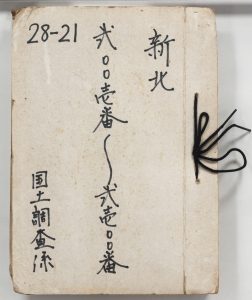 28-21
新北
弐〇〇壱番〜弐壱〇〇番
国土調査係